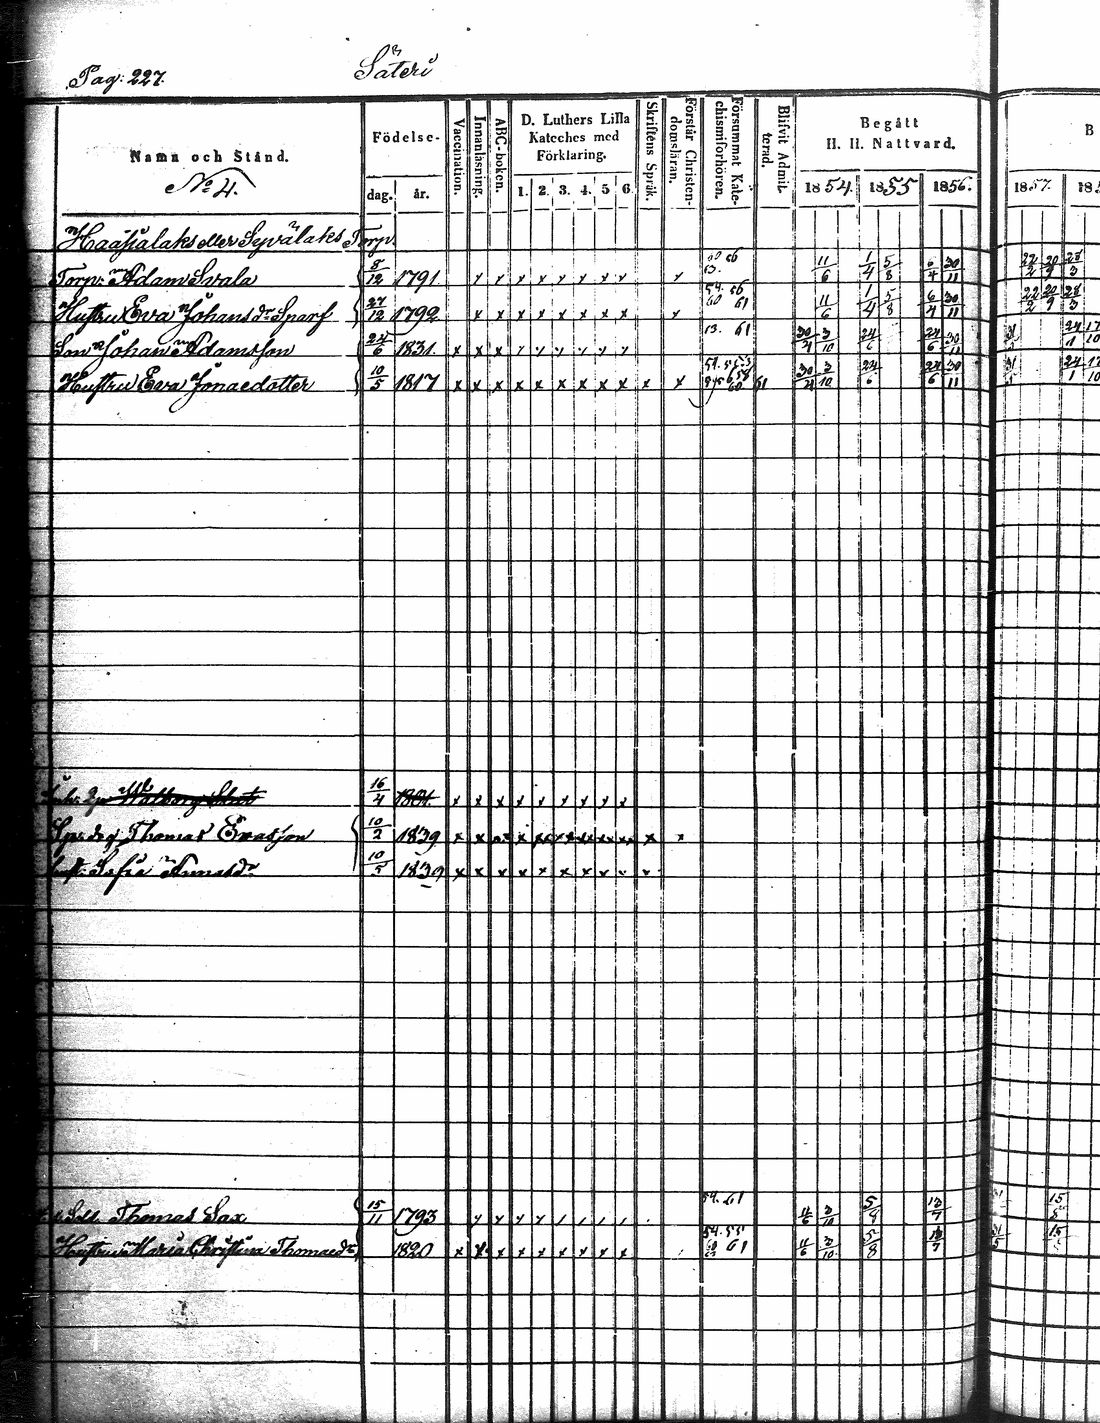 Pag: 227. Säteri
Namn och Stånd.
No 4.
Födelse-
dag. år.
Vaccination.
Innanläsning.
ABC-boken.
D. Luthers Lilla
Kateches med
Förklaring.
1. 2. 3. 4. 5. 6.
Skriftens Språk.
Förstår Christen-
domsläran.
Försummat Kate-
chismiförhören.
Blifvit Admit-
terad.
Begått
H. H. Nattvard.
1854. 1855 1856.
B
1857. 185
eller Torp.
Torp: Adam Svala 8/12 1791 x x x x x x x x x 11/6 1/4 5/8 6/4 30/11 22/2 20/9 28/3
Hustru Eva Johansdr Sparf 27/12 1792 x x x x x x x x x 54. 56 60 61 11/6 1/4 5/8 6/4 30/11 22/2 20/9 28/3
Son Johan Adamsson 24/6 1831 x x x x x x x x x 13. 61 30/4 3/10 24/6 24/6 30/11
Hustru Eva Jonaedotter 10/5 1817 x x x x x x x x x x x 61 30/4 3/10 24/6 24/6 30/11
Walborg 16/4 1801. x x x x x x x x x
Thomas Evasson 10/2 1839 x x x x x x x x x x x
Sofia Annasdr 10/5 1839 x x x x x x x x x x
Thomas Sax 15/11 1793 54. 61 11/6 3/10 5/8 13/7 15
Hustru Maria Christina Thomaedr 1820 x x x x x x x x x 54. 55 61 11/6 3/10 5/8 13/7 31/5 15/5